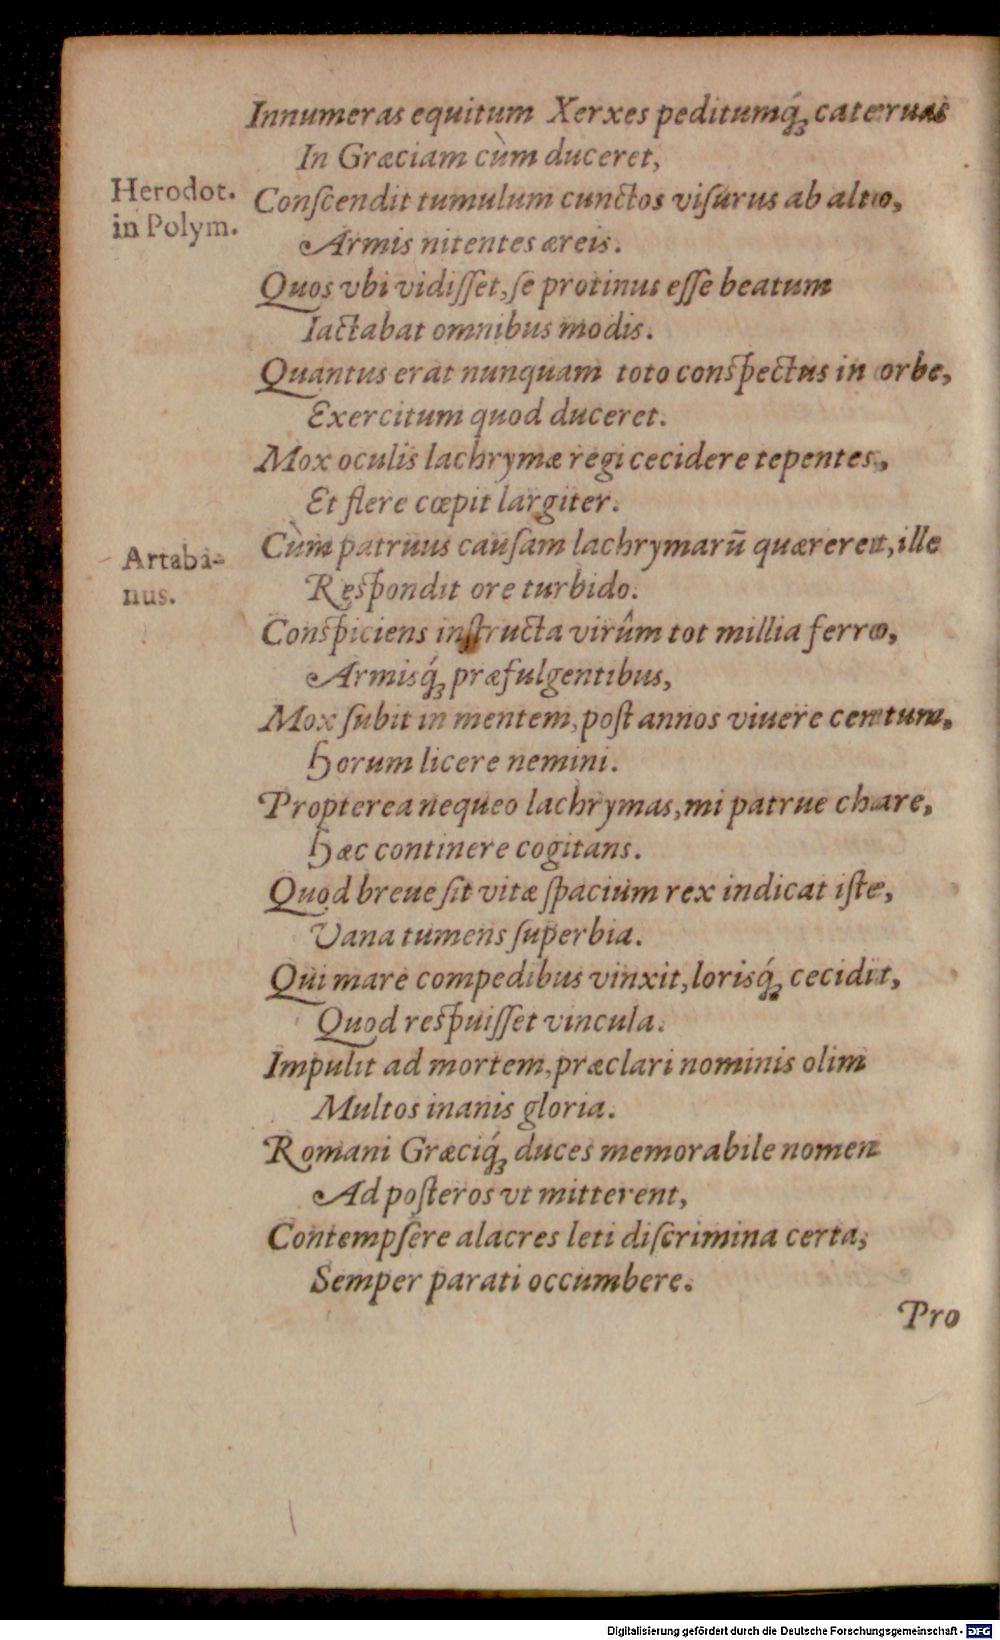 Innumeras equitum Xerxes peditumq́ꝫ cateruas
In Græciam cùm duceret,
Herodot.
in Polym.
Conſcendit tumulum cunctos viſurus ab alto,
Armis nitentes æreis.
Quos vbi vidiſſet, ſe protinus eſſe beatum
Iactabat omnibus modis.
Quantus erat nunquam toto conſpectus in orbe,
Exercitum quod duceret.
Mox oculis lachrymæ regi cecidere tepentes,
Et flere cœpit largiter.
Cùm patruus cauſam lachrymarū quæreret, ille
Artaba-
nus.
Reſpondit ore turbido.
Conſpiciens inſtructa virûm tot millia ferro,
Armisq́ꝫ præfulgentibus,
Mox ſubit in mentem, poſt annos viuere centum,
Horum licere nemini.
Propterea nequeo lachrymas, mi patrue chare,
Hæc continere cogitans.
Quod breue ſit vitæ ſpacium rex indicat iſte,
Vana tumens ſuperbia.
Qui mare compedibus vinxit, lorisq́ꝫ cecidit,
Quod reſpuiſſet vincula.
Impulit ad mortem, præclari nominis olim
Multos inanis gloria.
Romani Græciq́ꝫ duces memorabile nomen
Ad poſteros vt mitterent,
Contempſere alacres leti diſcrimina certa,
Semper parati occumbere.
Pro
Digitalisierung gefördert durch die Deutsche Forschungsgemeinschaft - DFG